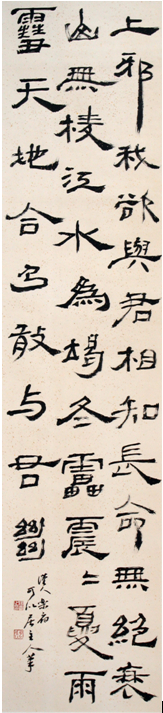 上邪我欲與君相知長命無絕衰
山無棱江水為竭冬靁震〻夏雨
䨮天地合乃敢与君𢇍
漢人樂府